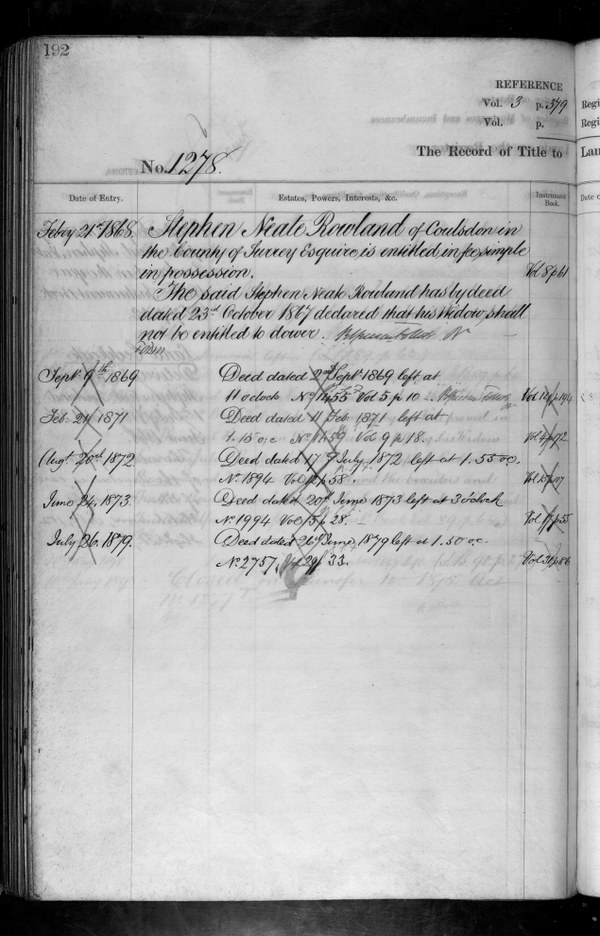 192
REFERENCE
Vol. 3 p. 379
Vol. p.
No. 1278.
The Record of Title to
Date of Entry.
Estates, Powers, Interests, &c.
Instrument Book.
Feby 21st 1868.
Stephen Neate Rowland of Coulsdon in
the County of Surrey Esquire is entitled in fee simple
in possession.
Vol 8 p 61
The said Stephen Neate Rowland has by deed
dated 23rd October 1867 declared that his Widow shall
not be entitled to dower.
Sept 9th 1869
Deed dated 2nd Sept 1869 left at
11 oclock No 1455 Vol 5 p 10
Feb 21 1871
Deed dated 11 Feb 1871 left at
1.15 o.c No 1159 Vol 9 p 18.
Augt 20th 1872
Deed dated 17 July 1872 left at 1.55 o.c.
No. 1894 Vol 12 p 58.
June 24. 1873.
Deed dated 20th June 1873 left at 3 oclock
No 1994 Vol 15 p 28.
July 26. 1879.
Deed dated 26 June 1879 left at 1.50 o.c.
No. 2757, Vol 29 p 33.
Vol 31 p 86
Regi
Regi
Lan
Date o